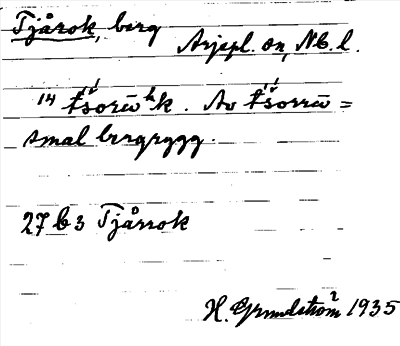 Tjårok, berg
Arjepl. sn, Nb. l.
14 tšorūʰk. Av tšorrū =
smal bergrygg.
27 b 3 Tjårrok
H. Grundström 1935